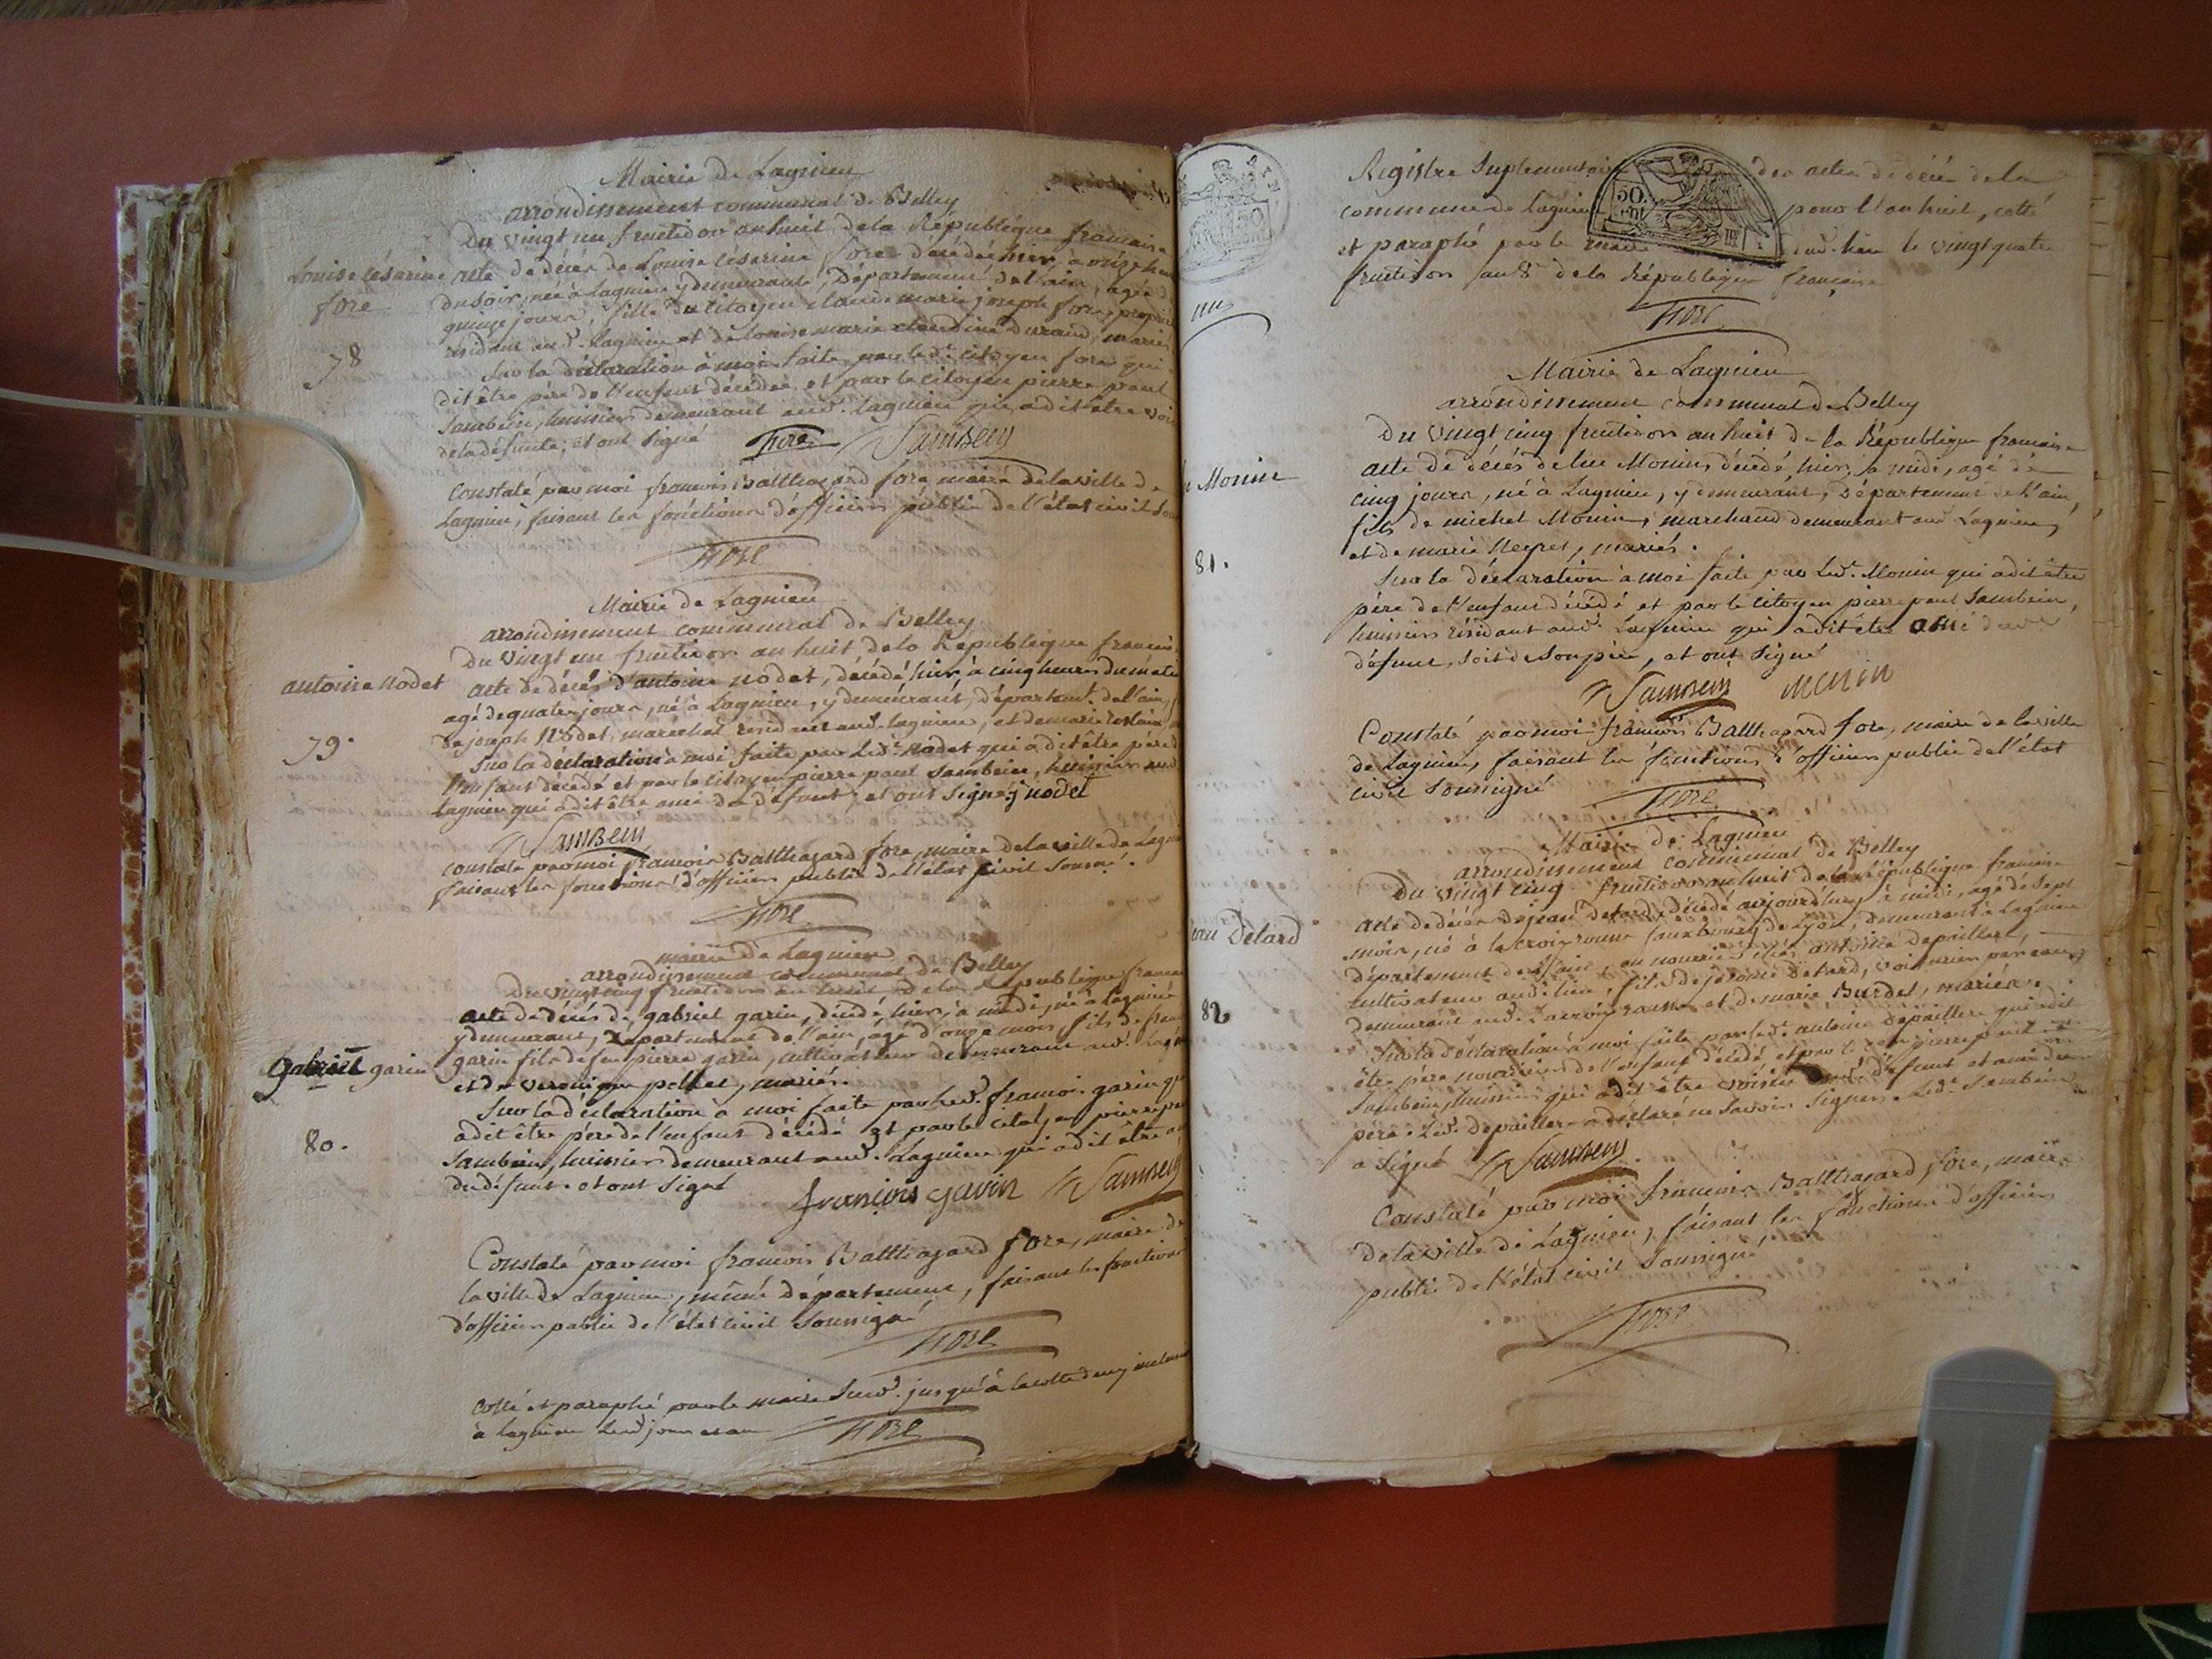 Mairie de Lagnieu
arrondissement communal de Belley
Du vingt un fructidor an huit de la République française
Louise Césarine fore
78
acte de décés de Louise Césarine fore décédée hier, à onze heu
du soir, née à Lagnieu y demeurant, Département de l'ain, agée d
quinze jours, fille du citoyen Louis marie joseph fore, propri
résidant aud. Lagnieu et de Louise marie claudine durand, mariés
Sur la déclaration à moi faite par led. citoyen fore qui
dit être père de l'enfant décédée et par le citoyen pierre paul
Sambein, huissier demeurant aud. Lagnieu qui a dit être voi
de la défunte, et ont signé fore Sambein
Constaté par moi françois Balthazard fore maire de la ville de
Lagnieu, faisant les fonctions d'officier public de l'état civil Sou
fore
Mairie de Lagnieu
arrondissement communal de Belley
Du vingt un fructidor an huit de la République français
antoine Nodet
79.
acte de décés d'antoine nodet, décédé hier, à cinq heures du mati
agé de quatre jours, né à Lagnieu, y demeurant, départemt. de l'ain,
de joseph Nodet, marechal résidant aud. Lagnieu, et de marie
Sur la déclaration à moi faite par led. Nodet qui a dit être père d
l'enfant décédé et par le citoyen pierre paul Sambein, huissier aud.
Lagnieu qui a dit être ami du défunt, et ont signé j nodet
Sambein
constaté par moi françois Balthazard fore, maire de la ville de Lagni
faisant les fonctions d'officier public de l'état civil Sousné.
fore
mairie de Lagnieu
arrondissement communal de Belley
Du vingt cinq fructidor an huit de la République france
gabriel garin
80.
acte de décés de gabriel garin, décédé hier, à midi, né à Lagnieu
y demeurant, Département de l'ain, agé d'onze mois, fils de fran
garin fils de feu pierre garin, cultivateur demeurant aud. Lagn
et de veronique pellet, mariés.
Sur la déclaration à moi faite par led. françois garin qu
a dit être père de l'enfant décédé et par le citoyen pierre pa
Sambein, huissier demeurant aud. Lagnieu qui a dit être a
du défunt. et ont signé françois garin Sambein
Constaté par moi françois Balthazard fore, maire de
la ville de Lagnieu, même département, faisant les fonctions
d'officier public de l'état civil Soussigné
fore
Cotté et paraphé par le maire Susd. jusqu'à la cotte
à Lagnieu led jour et an fore
Registre Suplementaire des actes de décés de la
commune de Lagnieu pour l'an huit, cotté
et paraphé par le maire dud. lieu le vingt quatre
fructidor an 8 de la République française
50. cent
fore
Mairie de Lagnieu
arrondissement communal de Belley
Du vingt cinq fructidor an huit de la République française
Monin
81.
acte de décés de luc Monin, décédé hier, à midi, agé de
cinq jours, né à Lagnieu, y demeurant, Département de l'ain,
fils de michel Monin, marchand demeurant aud Lagnieu,
et de marie Neyret, mariés.
Sur la déclaration à moi faite par led. Monin qui a dit être
père de l'enfant décédé et par le citoyen pierre paul Sambein,
huissier résidant aud. Lagnieu qui a dit être ami dud.
défunt, soit de son père, et ont signé
Sambein Monin
Constaté par moi françois Balthazard fore, maire de la ville
de Lagnieu, faisant les fonctions d'officier public de l'état
civil Soussigné
fore
Mairie de Lagnieu
arrondissement communal de Belley
Du vingt cinq fructidor an huit de la république française
Detard
82
acte de décés de jean detard, décédé aujourd'huy, à midi, agé de Sept
mois, né à la croix rousse fauxbourg de Lyon, demeurant à Lagnieu
département de l'ain en nourrice chés antoine depaillere,
cultivateur aud. lieu, fils de jérome detard, voiturier par eau,
demeurant aud. la croix rousse et de marie Burdet, mariés.
Sur la déclaration à moi faite par led. antoine depaillere qui a dit
être père nourricier de l'enfant décédé et par le citoyen pierre paul
Sambein, huissier qui a dit être voisin dud. défunt et ami du
père. led. depaillere a déclaré ne savoir signer. Led. Sambein
a signé Sambein
Constaté par moi françois Balthazard fore, maire
de la ville de Lagnieu, faisant les fonctions d'officier
public de l'état civil Soussigné
fore